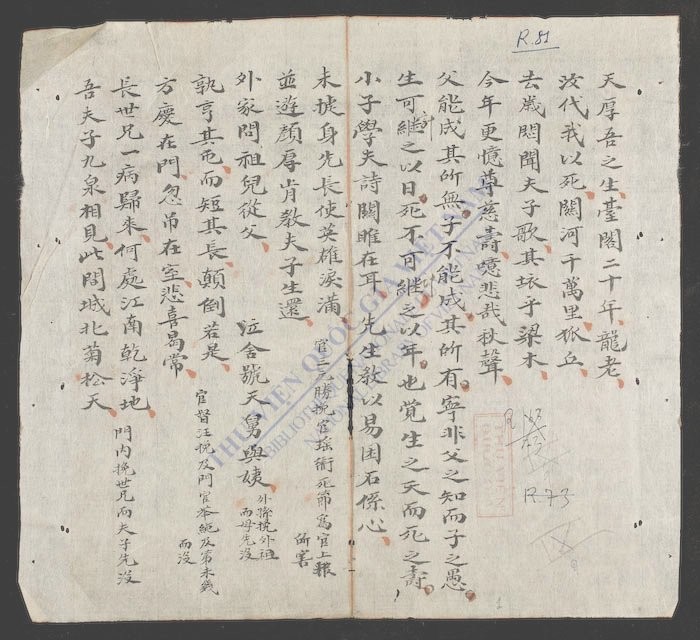 R.81
天厚吾之生臺閣二十年龍老
汝代我以死關河千萬里狐丘
去歲悶聞夫子歌其壞乎梁木
今年更憶尊慈壽噫悲哉秋聲
父能成其所無子不能成其所有寧非父之知而子之愚
生可継之以日死不可継之以年也覚生之夭而死之壽
小子學夫詩關雎在耳先生教以易困石係心
未捷身先長使英雄淚滿
並遊顏厚肯教夫子生還
官三勝挽官瑶衛死節為官上報所害
外家問祖兒從父 泣舍號天舅與姨
外孫挽外祖而母先沒
孰亨其屯而短其長顛倒若是
方慶在門忽吊在室悲喜曷常
官督汪挽及門官 及第未幾而沒
長世兄一病歸來何處江南乾淨地
吾夫子九泉相見此間城北菊松天
門內挽世兄而夫子先沒
R.73
THƯ VIỆN QUỐC GIA VIỆT NAM
NATIONAL LIBRARY OF VIETNAM